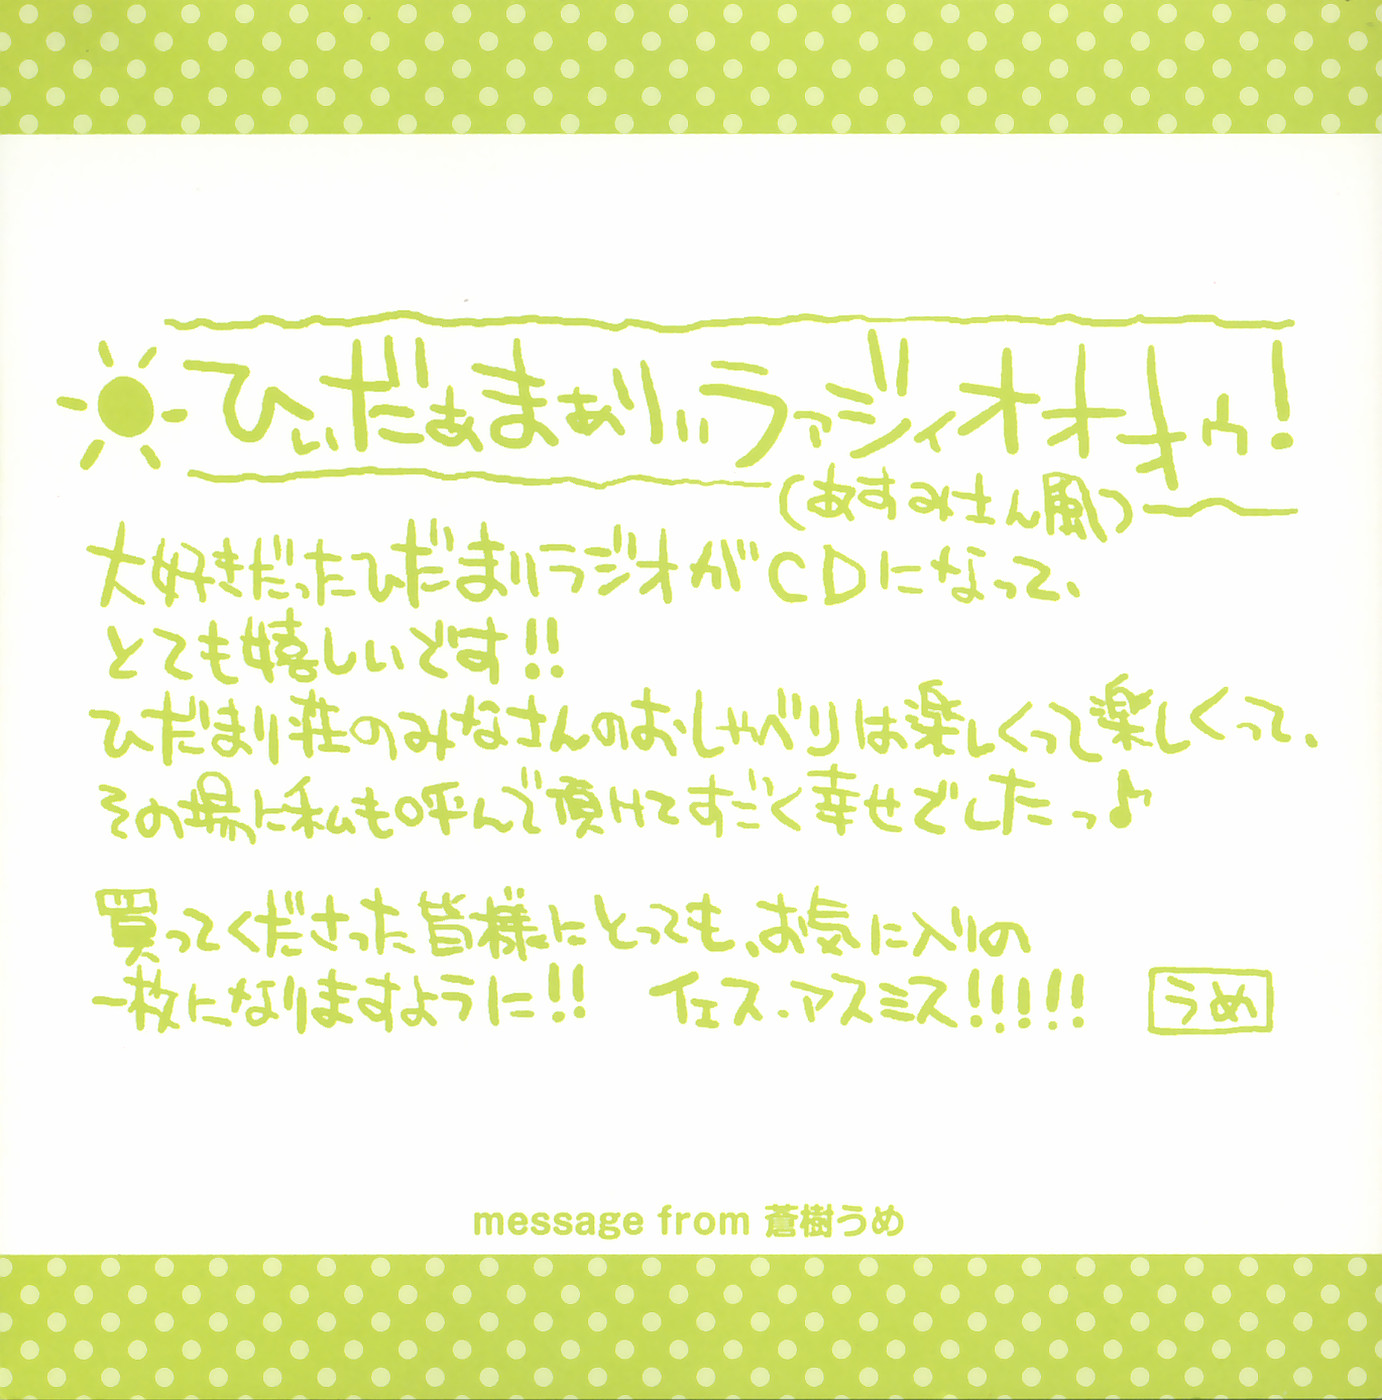 ひぃだぁまぁりぃラァジィオオォゥ!
(あすみさん風)
大好きだったひだまりラジオがCDになって、
とても嬉しいです!!
ひだまり荘のみなさんのおしゃべりは楽しくって楽しくって、
その場に私も呼んで頂けてすごく幸せでしたっ♪
買ってくださった皆様にとっても、お気に入りの
一枚になりますように!! イェス・アスミス!!!!! うめ
message from 蒼樹うめ